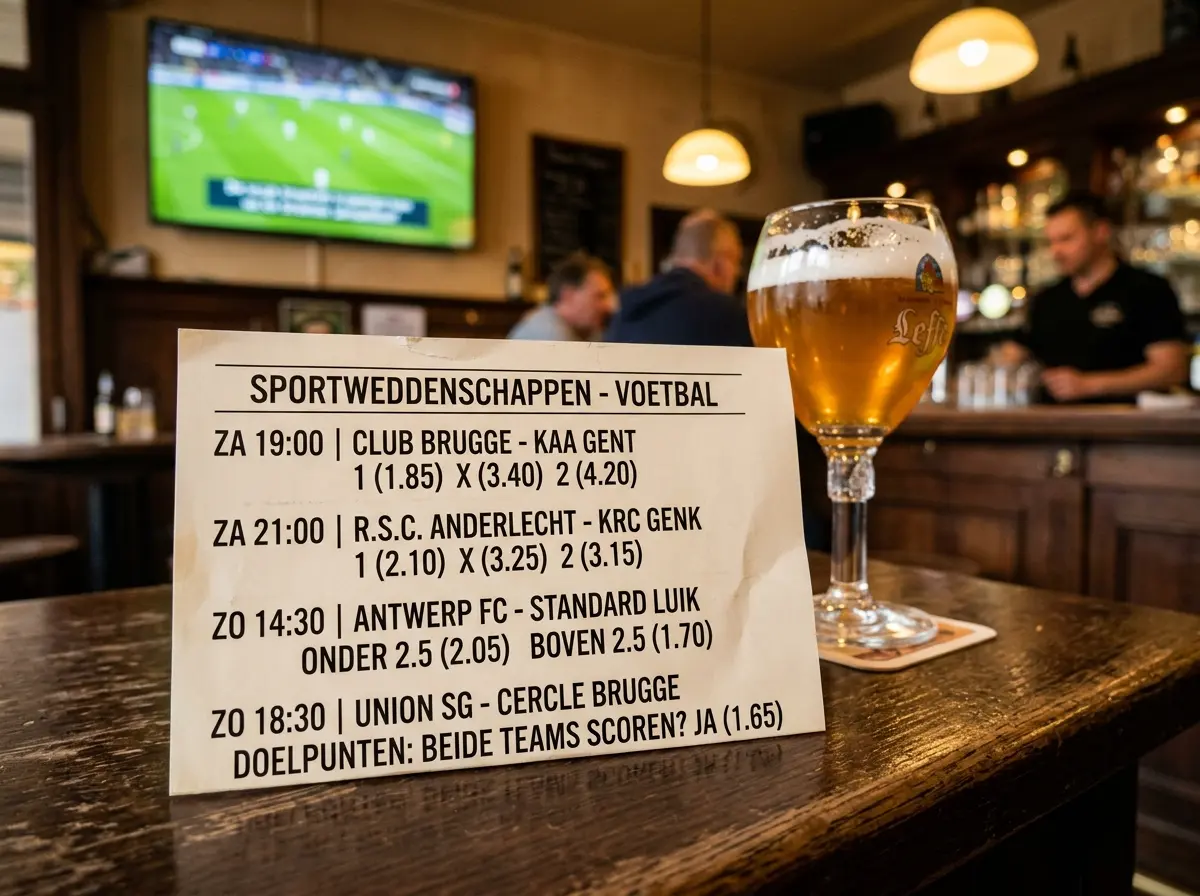 SPORTWEDDENSCHAPPEN - VOETBAL
ZA 19:00 | CLUB BRUGGE - KAA GENT
1 (1.85) X (3.40) 2 (4.20)
ZA 21:00 | R.S.C. ANDERLECHT - KRC GENK
1 (2.10) X (3.25) 2 (3.15)
ZO 14:30 | ANTWERP FC - STANDARD LUIK
ONDER 2.5 (2.05) BOVEN 2.5 (1.70)
ZO 18:30 | UNION SG - CERCLE BRUGGE
DOELPUNTEN: BEIDE TEAMS SCOREN? JA (1.65)
Leffe